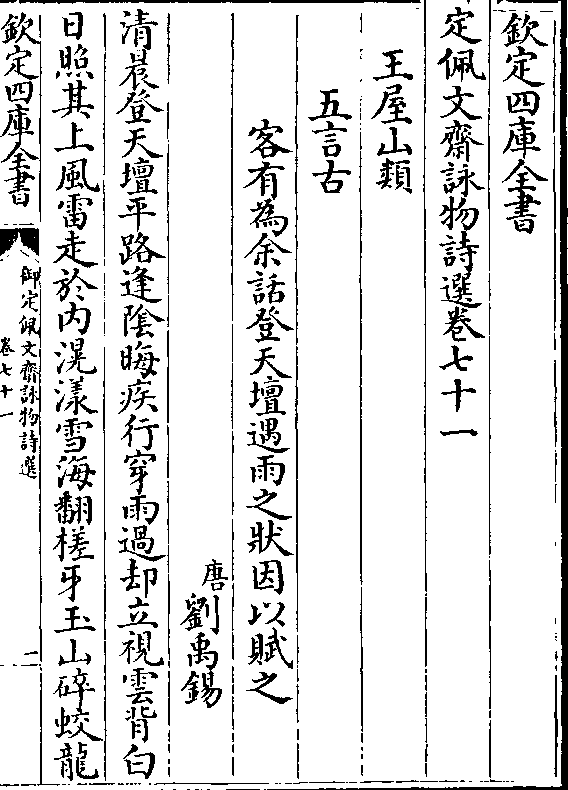 欽定四庫全書
定佩文齋詠物詩選卷七十一
王屋山類
五言古
客有為余話登天壇遇雨之狀因以賦之
唐劉禹錫
清晨登天壇平路逢陰晦疾行穿雨過却立視雲背白
日照其上風雷走於内滉漾雪海翻槎牙玉山碎蛟龍
欽定四庫全書
御定佩文齋詠物詩選
卷七十一
一